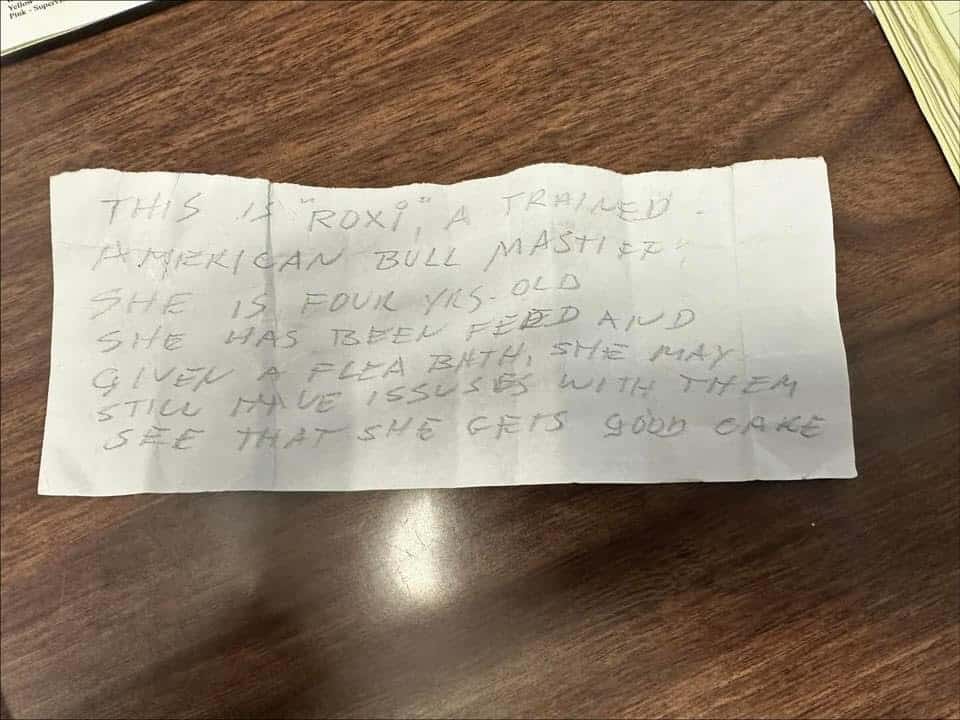 Yellow
Pink - Superv
THIS IS "ROXi", A TRAINED
AMERICAN BULL MASTIFF.
SHE IS FOUR YRS. OLD
SHE HAS BEEN FEED AND
GIVEN A FLEA BATH, SHE MAY
STILL HAVE ISSUSES WITH THEM
SEE THAT SHE GETS GOOD CARE